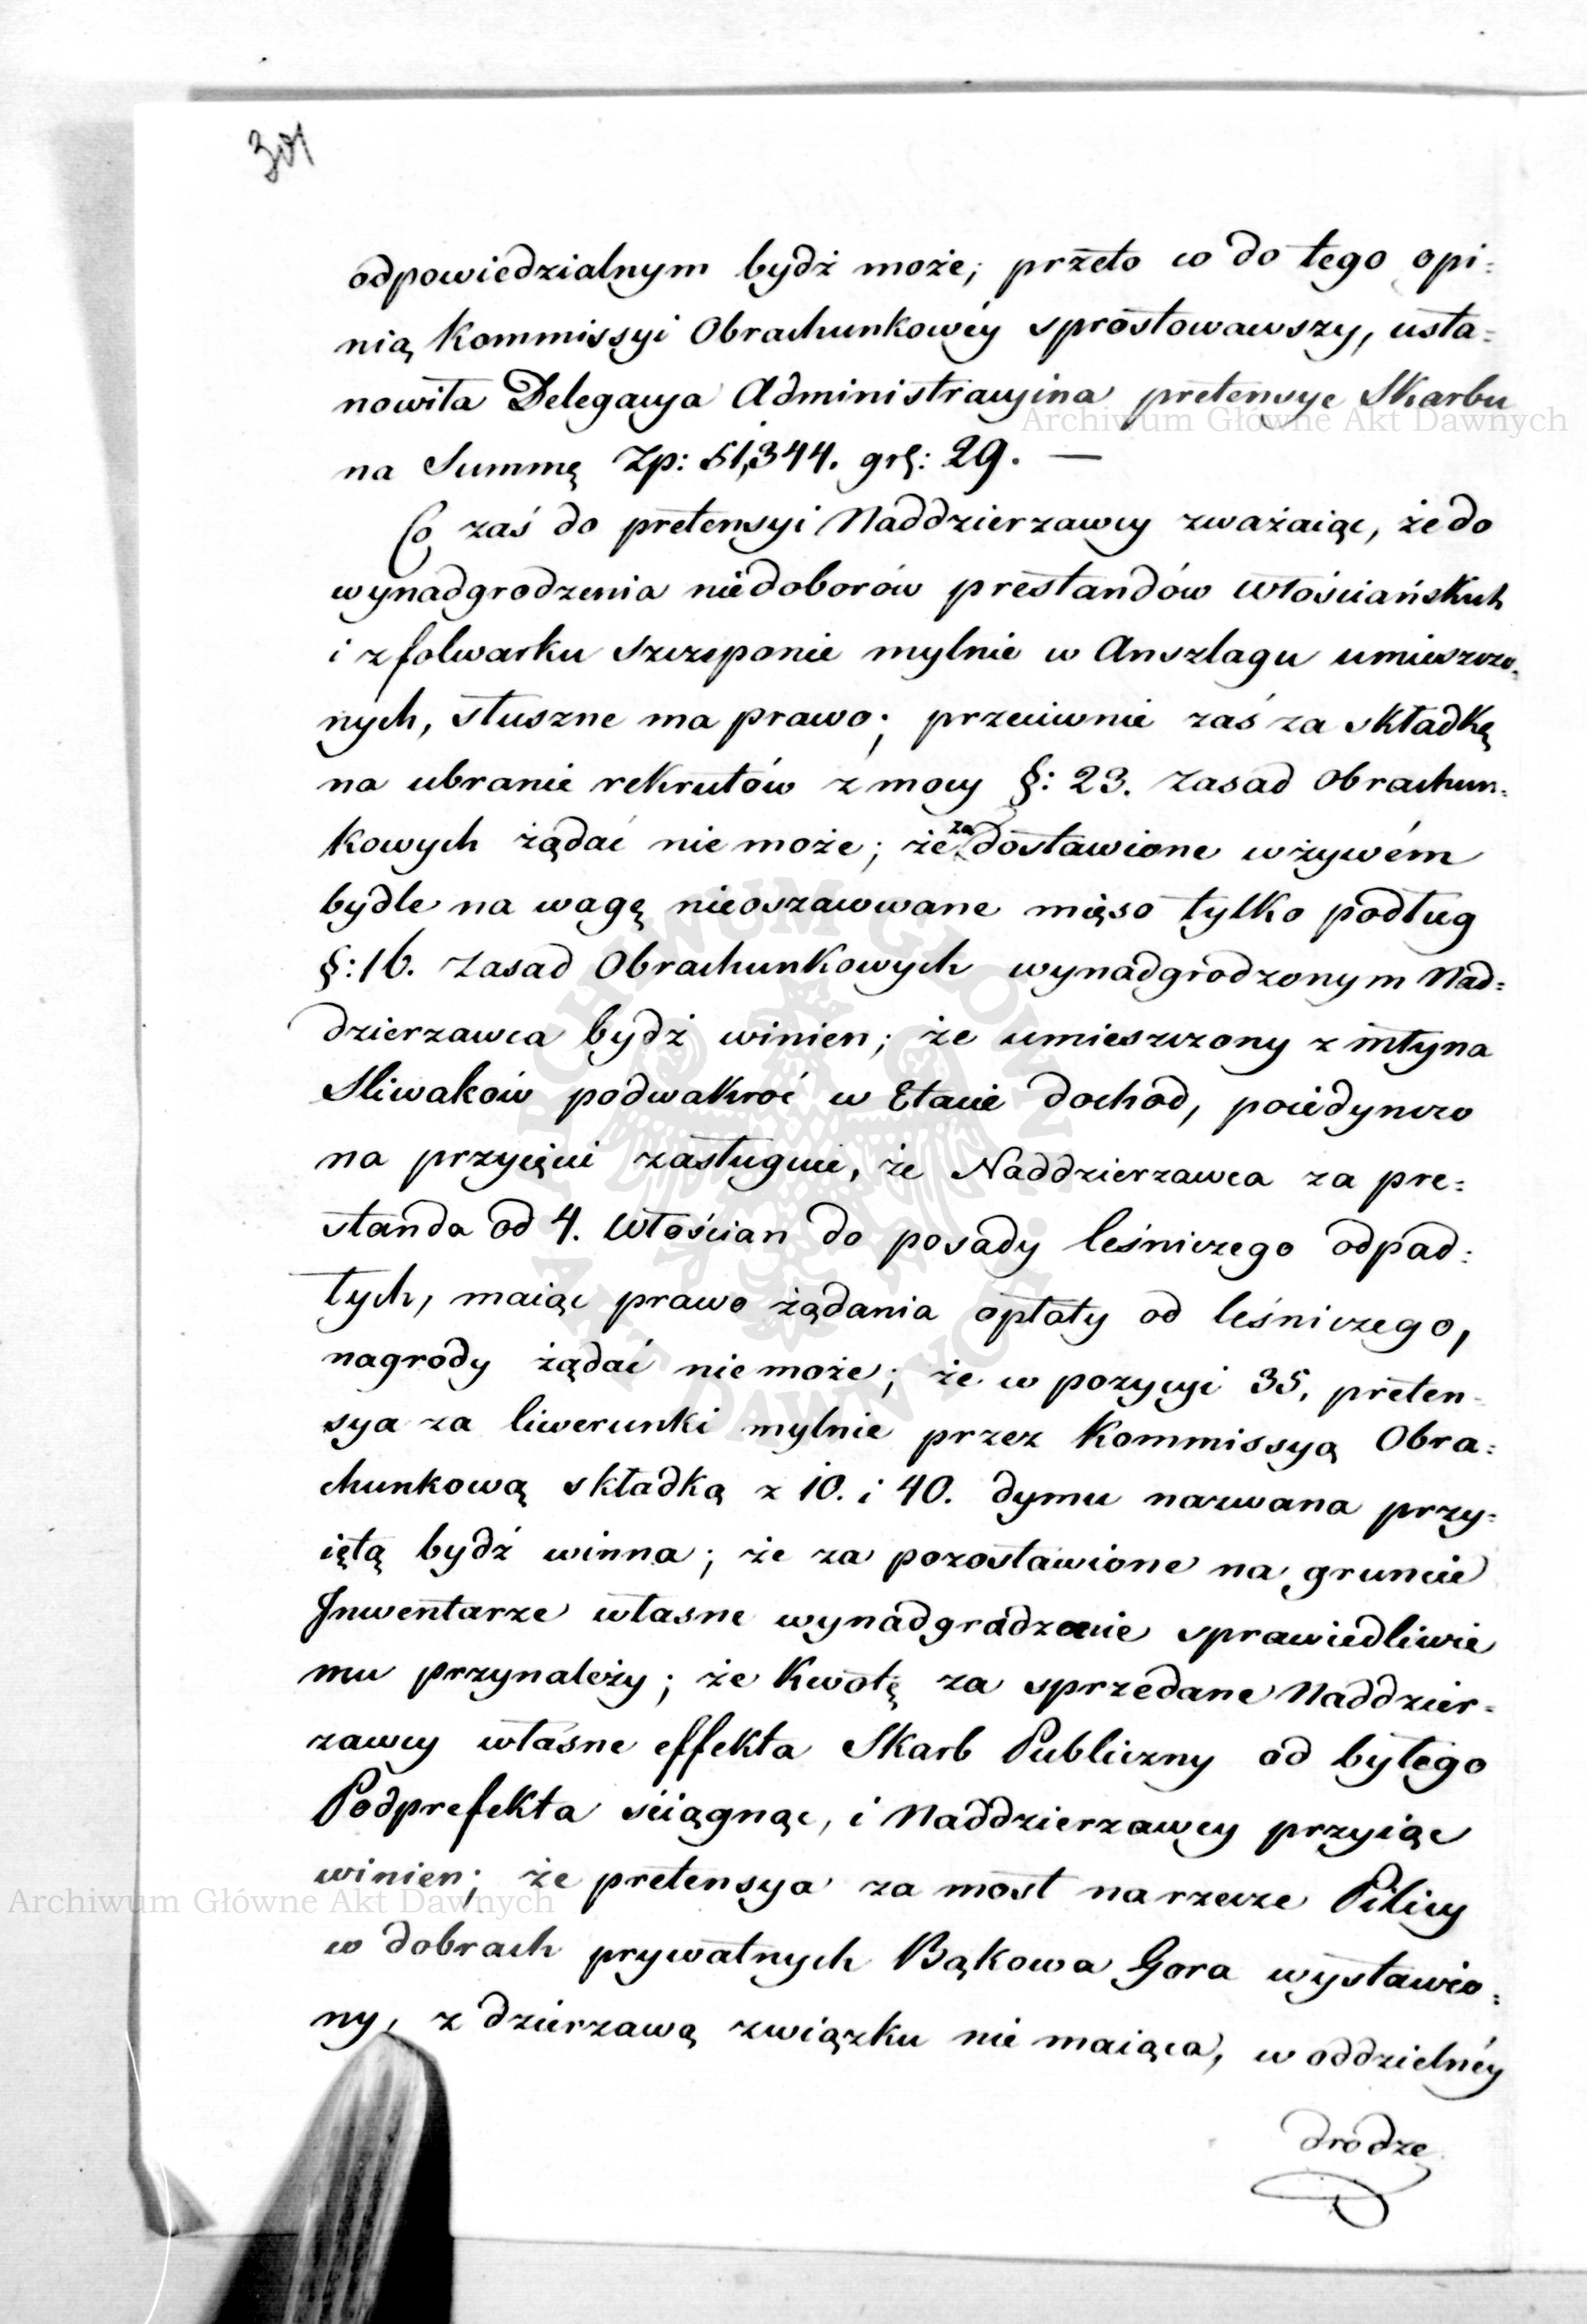 301
odpowiedzialnym bydź może; przeto co do tego opi:
nią Kommissyi Obrachunkowéy sprostowawszy, usta:
nowiła Delegacya Administracyina pretensye Skarbu
Archiwum Główne Akt Dawnych
na Summę Zp: 51,344. grs: 29. —
Co zaś do pretensyi Naddzierzawcy zważaiąc, że do
wynadgrodzenia niedoborów prestandów Włościańskich
i z folwarku Szczeponie mylnie w Anszlagu umieszczo:
nych, słuszne ma prawo; przeciwnie zaś za składkę
na ubranie rekrutów z mocy §: 23. Zasad Obrachun:
kowych żądać nie może; że za dostawione w żywém
bydle na wagę nieoszacowane mięso tylko podług
§: 16. Zasad Obrachunkowych wynadgrodzonym Nad:
dzierzawca bydź winien; że umieszczony z młyna
Sliwaków podwakroć w Etacie dochód, poiedynczo
na przyięcie zasługuie, że Naddzierzawca za pre:
standa od 4. Włościan do posady leśniczego odpad:
łych, maiąc prawo żądania opłaty od leśniczego,
nagrody żądać nie może; że w pozycyi 35, preten:
sya za liwerunki mylnie przez Kommissyą Obra:
chunkową składką z 10. i 40. dymu nazwana przy:
iętą bydź winna; że za pozostawione na gruncie
Inwentarze własne wynadgradzanie sprawiedliwie
mu przynależy; że Kwotę za sprzedane Naddzier:
zawcy własne effekta Skarb Publiczny od byłego
Podprefekta ściągnąć, i Naddzierzawcy przyiąć
winien; że pretensya za most na rzecze Pilicy
Archiwum Główne Akt Dawnych
w dobrach prywatnych Bąkowa Gora wystawio:
ny, z dzierzawą związku nie maiąca, w oddzielnéy
drodze
ARCHIWUM GŁÓWNE AKT DAWNYCH